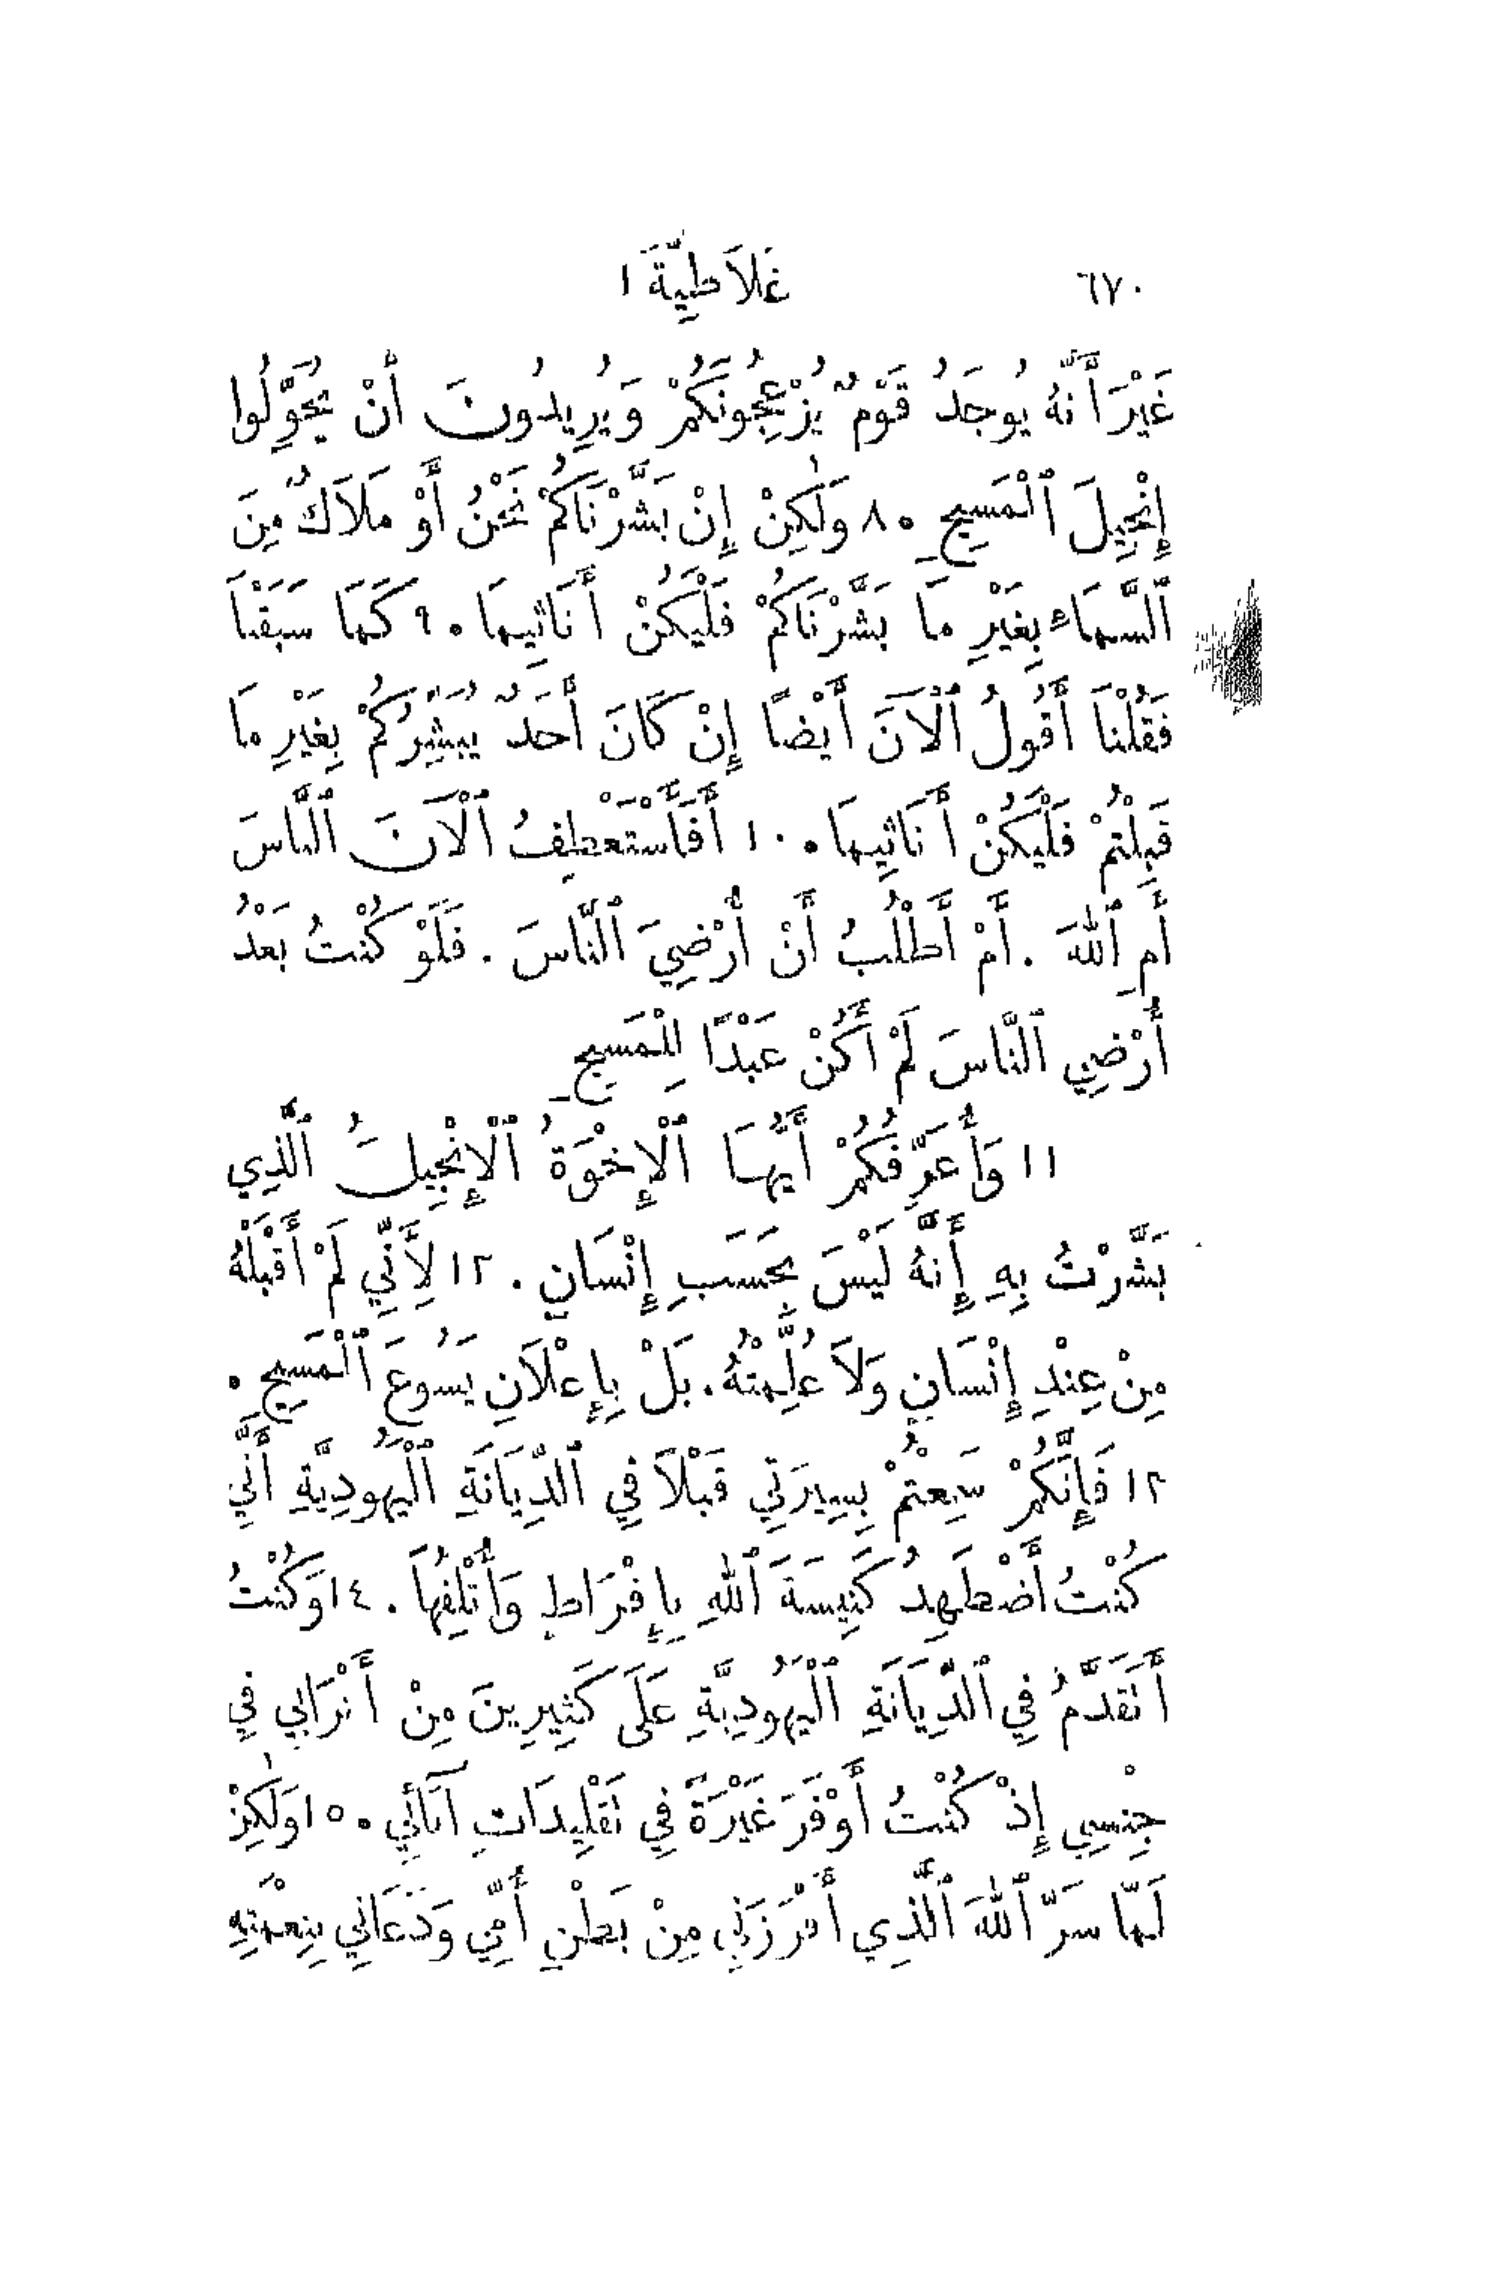 ٦٧٠ غَلَاطِيَّةَ ١
غَيْرَ أَنَّهُ يُوجَدُ قَوْمٌ يُزْعِجُونَكُمْ وَيُرِيدُونَ أَنْ يُحَوِّلُوا
إِنْجِيلَ ٱلْمَسِيحِ ٠ ٨ وَلٰكِنْ إِنْ بَشَّرْنَاكُمْ نَحْنُ أَوْ مَلَاكٌ مِنَ
ٱلسَّمَاءِ بِغَيْرِ مَا بَشَّرْنَاكُمْ فَلْيَكُنْ أَنَاثِيمَا ٠ ٩ كَمَا سَبَقْنَا
فَقُلْنَا أَقُولُ ٱلْآنَ أَيْضًا إِنْ كَانَ أَحَدٌ يُبَشِّرُكُمْ بِغَيْرِ مَا
قَبِلْتُمْ فَلْيَكُنْ أَنَاثِيمَا ٠ ١٠ أَفَأَسْتَعْطِفُ ٱلْآنَ ٱلنَّاسَ
أَمِ ٱللهَ . أَمْ أَطْلُبُ أَنْ أُرْضِيَ ٱلنَّاسَ . فَلَوْ كُنْتُ بَعْدُ
أُرْضِي ٱلنَّاسَ لَمْ أَكُنْ عَبْدًا لِلْمَسِيحِ
١١ وَأُعَرِّفُكُمْ أَيُّهَا ٱلْإِخْوَةُ ٱلْإِنْجِيلَ ٱلَّذِي
بَشَّرْتُ بِهِ إِنَّهُ لَيْسَ بِحَسَبِ إِنْسَانٍ . ١٢ لِأَنِّي لَمْ أَقْبَلْهُ
مِنْ عِنْدِ إِنْسَانٍ وَلَا عُلِّمْتُهُ . بَلْ بِإِعْلَانِ يَسُوعَ ٱلْمَسِيحِ ٠
١٣ فَإِنَّكُمْ سَمِعْتُمْ بِسِيرَتِي قَبْلًا فِي ٱلدِّيَانَةِ ٱلْيَهُودِيَّةِ أَنِّي
كُنْتُ أَضْطَهِدُ كَنِيسَةَ ٱللهِ بِإِفْرَاطٍ وَأُتْلِفُهَا . ١٤ وَكُنْتُ
أَتَقَدَّمُ فِي ٱلدِّيَانَةِ ٱلْيَهُودِيَّةِ عَلَى كَثِيرِينَ مِنْ أَتْرَابِي فِي
جِنْسِي إِذْ كُنْتُ أَوْفَرَ غَيْرَةً فِي تَقْلِيدَاتِ آبَائِي ٠ ١٥ وَلٰكِنْ
لَمَّا سَرَّ ٱللهَ ٱلَّذِي أَفْرَزَنِي مِنْ بَطْنِ أُمِّي وَدَعَانِي بِنِعْمَتِهِ